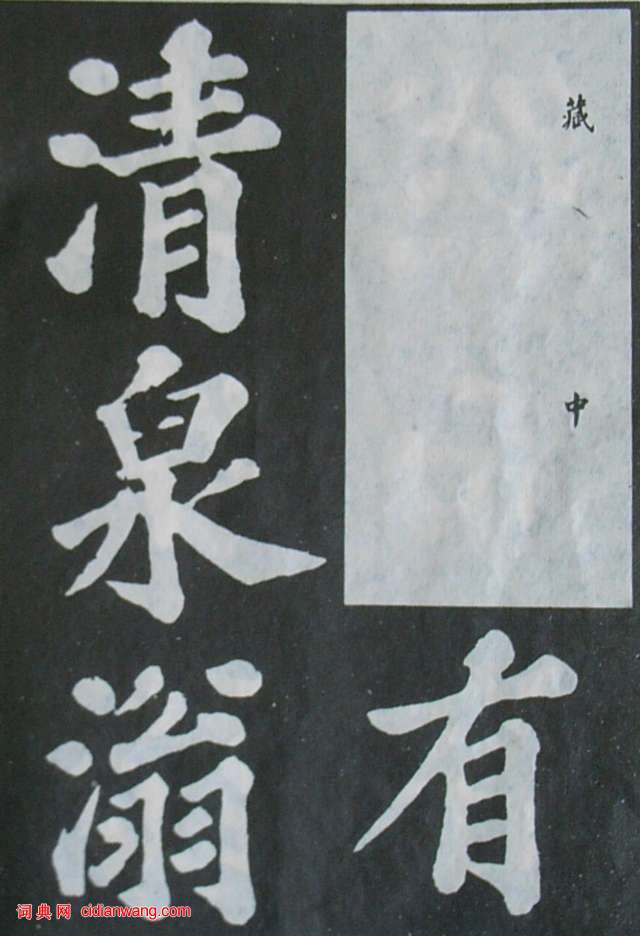 藏、中有
清泉滃
词典网 cidianwang.com